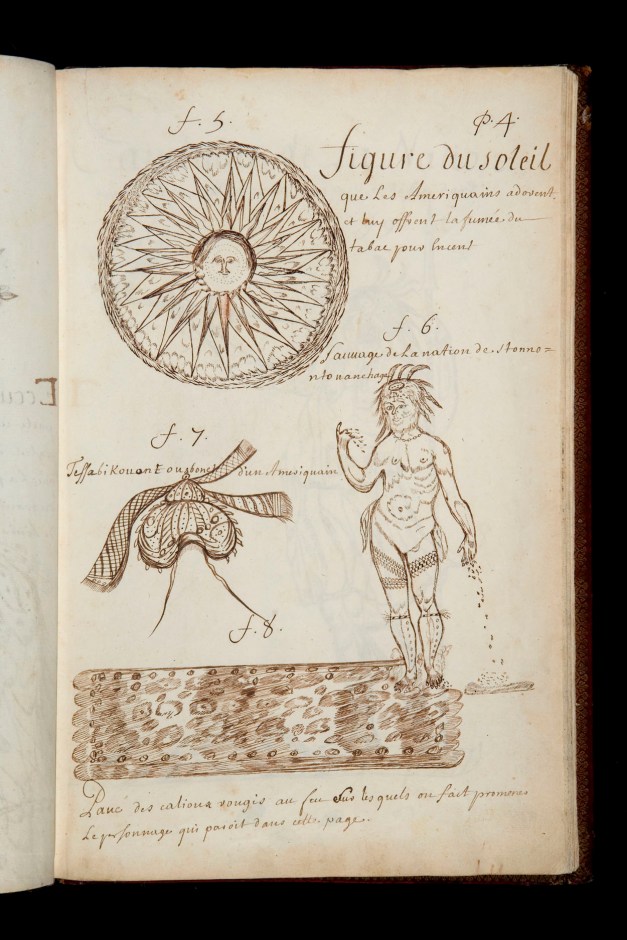 f. 5.
P. 4.
figure du soleil
que Les Ameriquains adorent
et luy offrent la fumée du
tabac pour Encens
f. 6.
Sauuage de La nation de stonno=
ntouanchaga
f. 7.
Tessabikouent ou bonet d'un Ameriquain
f. 8.
Paué des calioux rougis au feu Sur lesquels on fait promener
Le personnage qui paroit dans cette page.